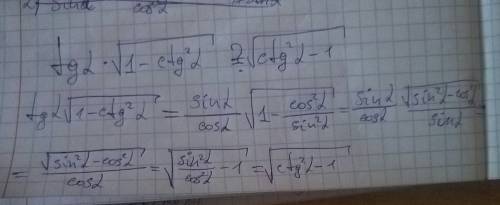 2) sinα / cosα
tgα · √(1 - ctg²α) ? √(ctg²α - 1)
tgα √(1 - ctg²α) = sinα/cosα √(1 - cos²α/sin²α) = sinα/cosα √(sin²α - cos²α)/sinα =
= √(sin²α - cos²α)/cosα = √(sin²α/cos²α - 1) = √(ctg²α - 1)